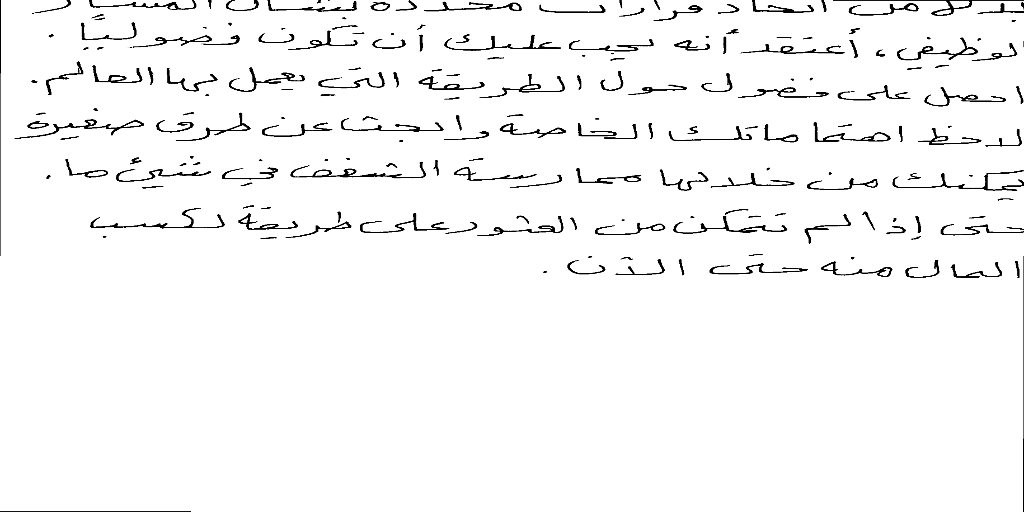 بدلاً من اتخاذ قرارات محددة بشأن المسار
الوظيفي، أعتقد أنه يجب عليك أن تكون فضوليًا.
احصل على فضول حول الطريقة التي يعمل بها العالم.
لاحظ اهتماماتك الخاصة وابحث عن طرق صغيرة
يمكنك من خلالها ممارسة الشغف في شيئ ما.
حتى إذا لم تتمكن من العثور على طريقة لكسب
المال منه حتى الآن.